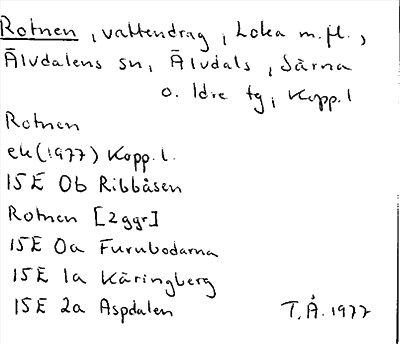 Rotnen, vattendrag, Loka m.fl.,
Älvdalens sn, Älvdals, Särna
o. Idre tg, Kopp.l
Rotnen
ek(1977) Kopp.l.
15E 0b Ribbåsen
Rotnen [2ggr]
15E 0a Furubodarna
15E 1a Käringberg
15E 2a Aspdalen T.Å.1977